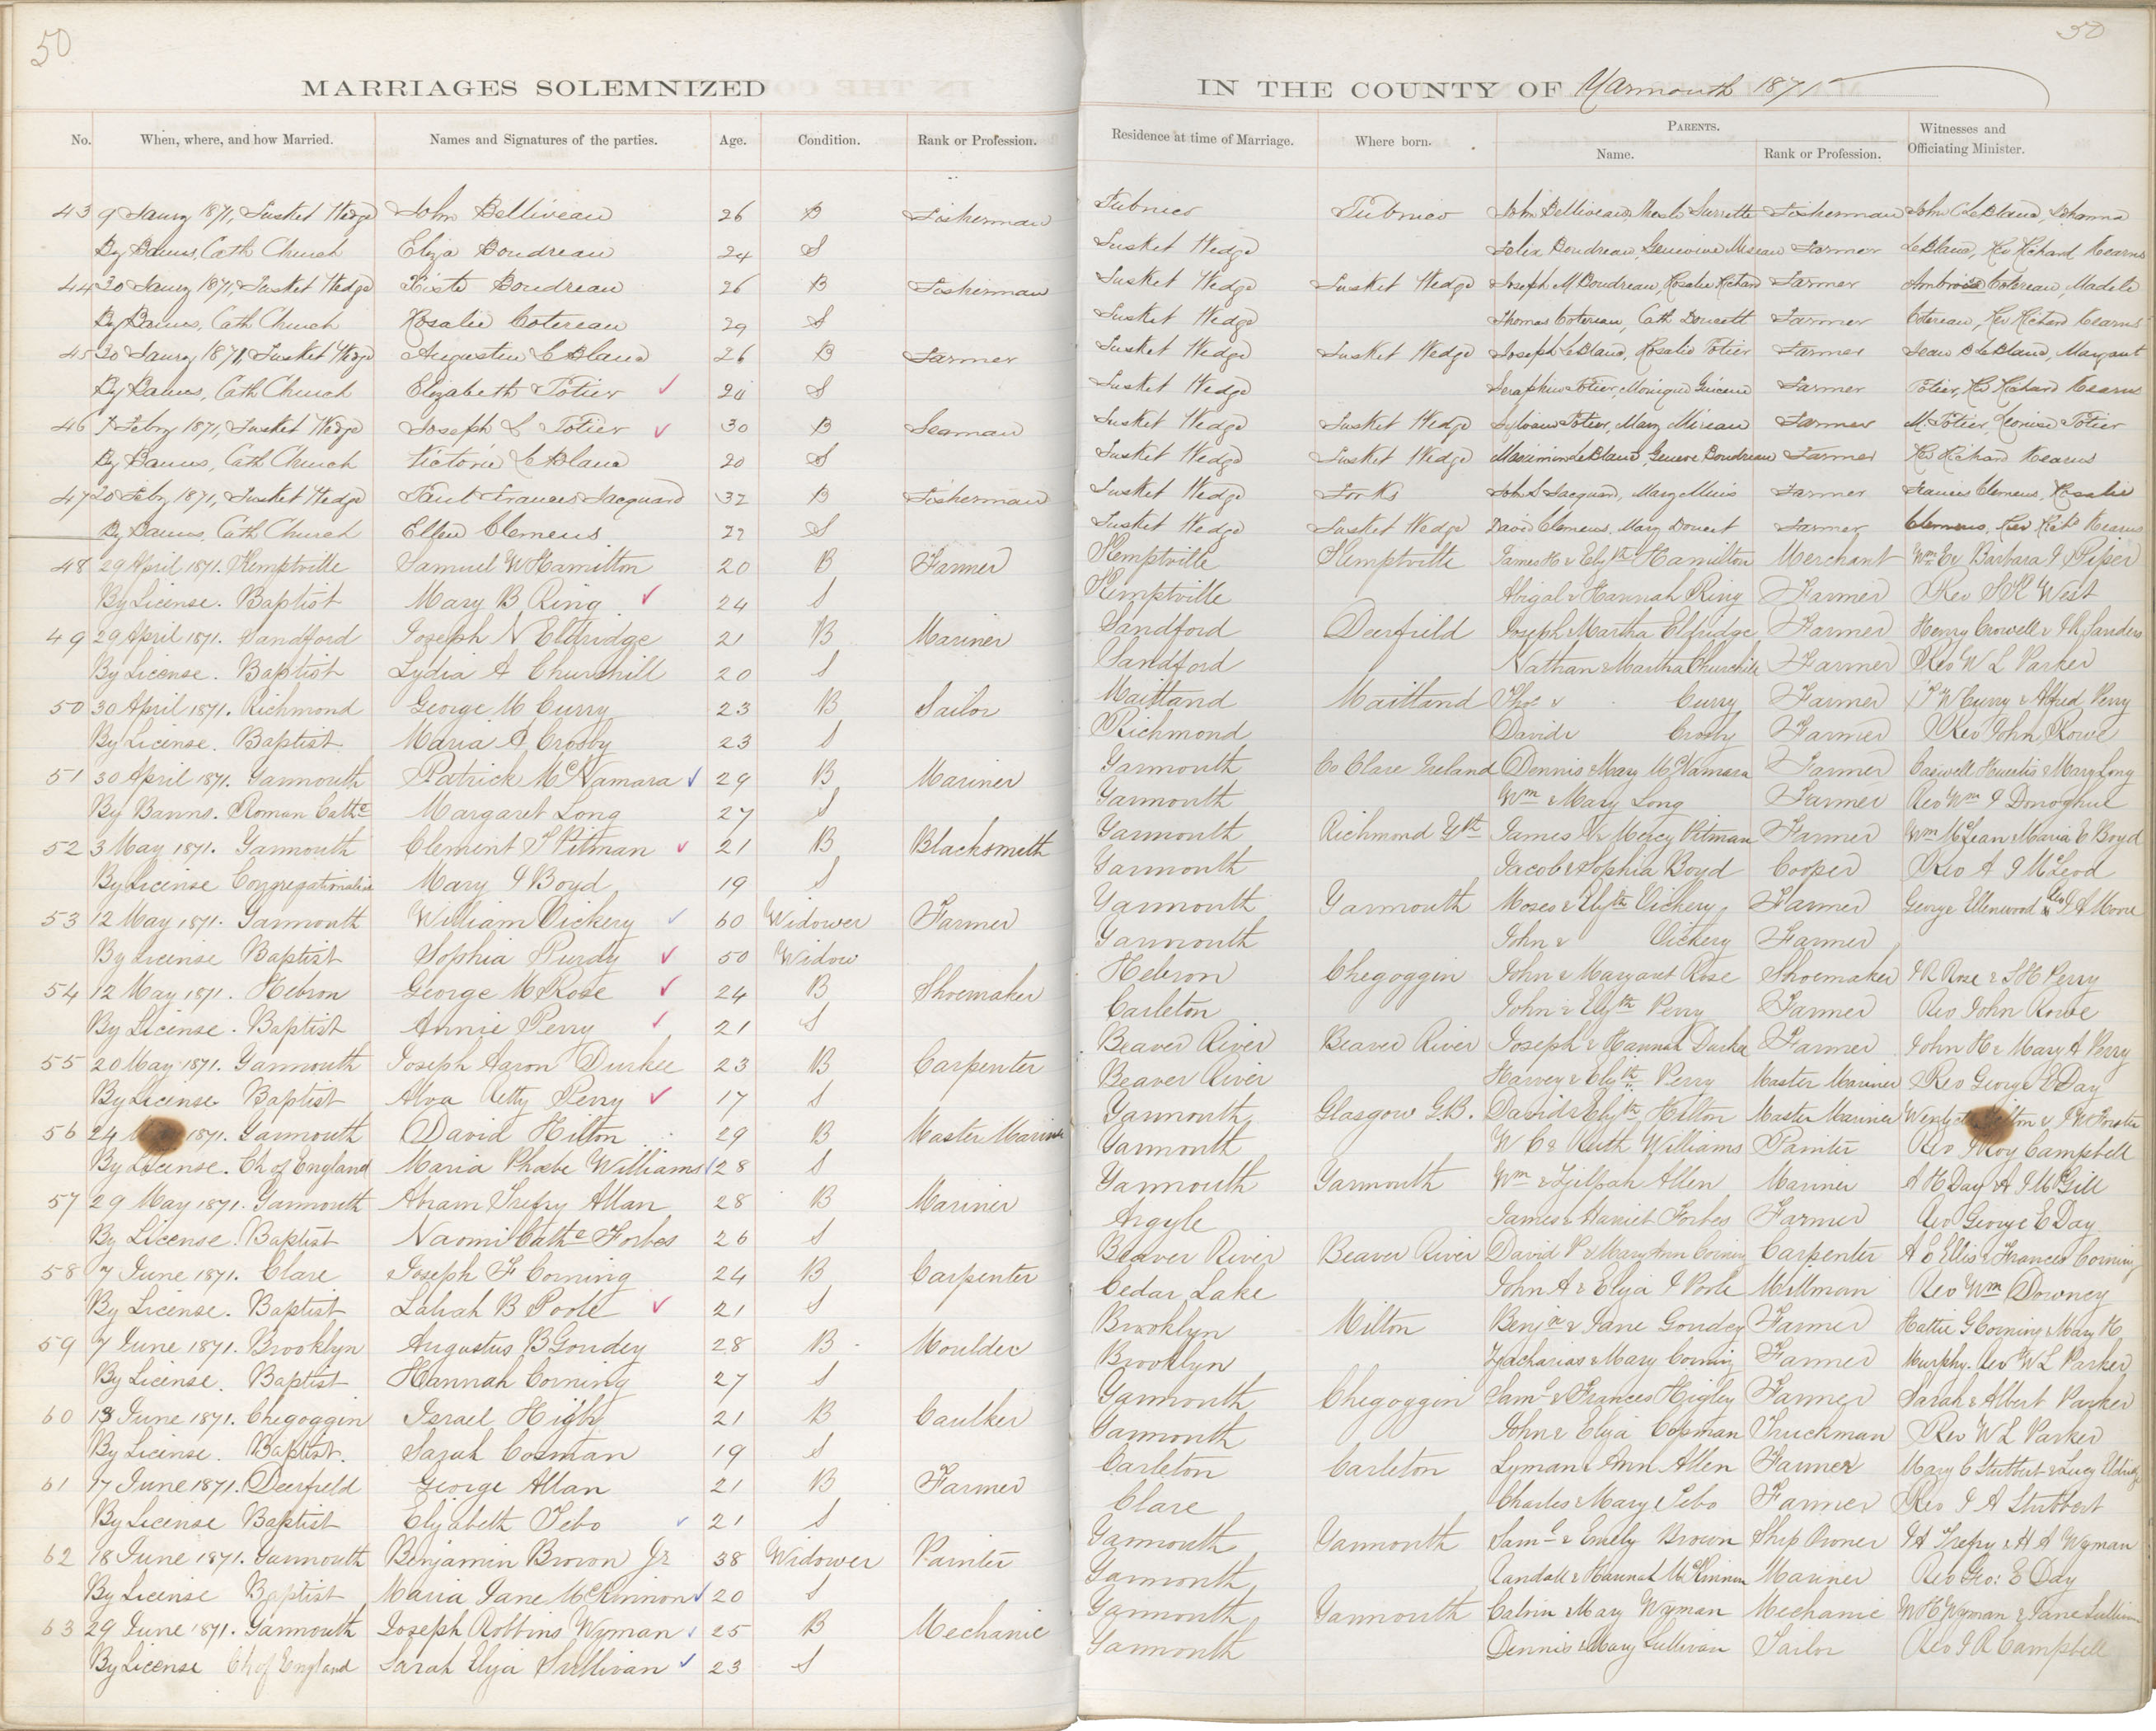 50
50
MARRIAGES SOLEMNIZED IN THE COUNTY OF Yarmouth 1871
No. When, where, and how Married. Names and Signatures of the parties. Age. Condition. Rank or Profession. Residence at time of Marriage. Where born. PARENTS. Name. Rank or Profession. Witnesses and Officiating Minister.
43 9 Jany 1871, Tusket Wedge John Belliveau 26 B Fisherman Pubnico Pubnico John Belliveau, Surrette Fisherman John C LeBlanc, Johanna
By Banns, Cath Church Eliza Boudreau 24 S Tusket Wedge Felix Boudreau, Genevieve Farmer LeBlanc, Rev Richard Kearns
44 30 Jany 1871, Tusket Wedge Sixte Boudreau 26 B Fisherman Tusket Wedge Tusket Wedge Joseph M Boudreau, Rosalie Richard Farmer Ambroise Cotereau, Madele
By Banns, Cath Church Rosalie Cotereau 29 S Tusket Wedge Thomas Cotereau, Cath Doucett Farmer Cotereau, Rev Richard Kearns
45 30 Jany 1871, Tusket Wedge Augustin LeBlanc 26 B Farmer Tusket Wedge Tusket Wedge Joseph LeBlanc, Rosalie Potier Farmer Jean B LeBlanc, Margaret
By Banns, Cath Church Elizabeth Potier S Tusket Wedge Seraphin Potier, Monique Farmer Potier, Rev Richard Kearns
46 7 Febry 1871, Tusket Wedge Joseph L Potier 30 B Seaman Tusket Wedge Tusket Wedge Sylvain Potier, Mary Farmer M. Potier, Louise Potier
By Banns, Cath Church Victorie LeBlanc 20 S Tusket Wedge Tusket Wedge Maximin LeBlanc, Geneve Boudreau Farmer Rev Richard Kearns
47 20 Feby 1871, Tusket Wedge Paul Frances Jacquard 32 B Fisherman Tusket Wedge Forks John L Jacquard, Mary Muis Farmer Frances Clemens, Rosalie
By Banns, Cath Church Ellen Clemens 22 S Tusket Wedge Tusket Wedge David Clemens, Mary Doucet Farmer Clemens, Rev Richd Kearns
48 29 April 1871. Kemptville Samuel W Hamilton 20 B Farmer Kemptville Kemptville James H & Elyth Hamilton Merchant Wm E & Barbara J Piper
By License. Baptist Mary B Ring 24 S Kemptville Abigal & Hannah Ring Farmer Rev S K West
49 29 April 1871. Sandford Joseph N Eldridge 21 B Mariner Sandford Deerfield Joseph & Martha Elfridge Farmer Henry Crowell & J K Sanders
By License. Baptist Lydia A Churchill 20 S Sandford Nathan & Martha Churchill Farmer Rev W L Parker
50 30 April 1871. Richmond George M Curry 23 B Sailor Maitland Maitland Thos & Curry Farmer W Curry & Alfred Perry
By License. Baptist Maria A Crosby 23 S Richmond David & Crosby Farmer Rev John Rowe
51 30 April 1871. Yarmouth Patrick McNamara 29 B Mariner Yarmouth Co Clare Ireland Dennis & Mary McNamara Farmer Caswell Huestis & Mary Long
By Banns. Roman Cathc Margaret Long 27 S Yarmouth Wm & Mary Long Farmer Rev Wm J Donoghue
52 3 May 1871. Yarmouth Clement P Pitman 21 B Blacksmith Yarmouth Richmond Yth James A & Mercy Pitman Farmer Wm McLean & Maria E Boyd
By License Congregationalist Mary J Boyd 19 S Yarmouth Jacob & Sophia Boyd Cooper Rev A J McLeod
53 12 May 1871. Yarmouth William Vickery 60 Widower Farmer Yarmouth Yarmouth Moses & Elyth Vickery Farmer George Ellenwood & Rev J A Moore
By License Baptist Sophia Purdy 50 Widow Yarmouth John & Vickery Farmer
54 12 May 1871. Hebron George M Rose 24 B Shoemaker Hebron Chegoggin John & Margaret Rose Shoemaker J R Rose & S H Perry
By License. Baptist Annie Perry 21 S Carleton John & Elyth Perry Farmer Rev John Rowe
55 20 May 1871. Yarmouth Joseph Aaron Durkee 23 B Carpenter Beaver River Beaver River Joseph & Hannah Durkee Farmer John H & Mary A Perry
By License Baptist Alva Letty Perry 17 S Beaver River Harvey & Elyth Perry Master Mariner Rev George E Day
56 24 1871. Yarmouth David Hilton 29 B Master Mariner Yarmouth Glasgow G.B. David & Elyth Hilton Master Mariner & J W Forster
By License. Ch of England Maria Phoebe Williams 28 S Yarmouth W C & Ruth Williams Painter Rev J Roy Campbell
57 29 May 1871. Yarmouth Abram Trefry Allan 28 B Mariner Yarmouth Yarmouth Wm & Zilpah Allen Mariner A H Day & A J McGill
By License. Baptist Naomi Cathe Forbes 26 S Argyle James & Harriet Forbes Farmer Rev George E Day
58 7 June 1871. Clare Joseph F Corning 24 B Carpenter Beaver River Beaver River David P & Mary Ann Corning Carpenter A C Ellis & Frances Corning
By License. Baptist Laliah B Poole 21 S Cedar Lake John A & Eliza J Poole Millman Rev Wm Downey
59 7 June 1871. Brooklyn Augustus B Goudey 28 B Moulder Brooklyn Milton Benjn & Jane Goudey Farmer Hattie G Corning & Mary H
By License. Baptist Hannah Corning 27 S Brooklyn Zacharias & Mary Corning Farmer Murphy. Rev W L Parker
60 13 June 1871. Chegoggin Israel Higby 21 B Caulker Yarmouth Chegoggin Saml & Frances Higley Farmer Sarah & Albert Parker
By License. Baptist. Sarah Cosman 19 S Yarmouth John & Eliza Cosman Truckman Rev W L Parker
61 17 June 1871. Deerfield George Allan 21 B Farmer Carleton Carleton Lyman & Ann Allen Farmer Mary C Stubbert & Lucy Eldridge
By License Baptist Elizabeth Tebo 21 S Clare Charles & Mary Tebo Farmer Rev J A Stubbert
62 18 June 1871. Yarmouth Benjamin Brown Jr 38 Widower Painter Yarmouth Yarmouth Saml & Emily Brown Ship Owner J A Trefry & H A Wyman
By License Baptist Maria Jane McKinnon 20 S Yarmouth Randall & Hannah McKinnon Mariner Rev Geo: E Day
63 29 June 1871. Yarmouth Joseph Robbins Wyman 25 B Mechanic Yarmouth Yarmouth Calvin & Mary Wyman Mechanic W H Wyman & Jane Sullivan
By License Ch of England Sarah Eliza Sullivan 23 S Yarmouth Dennis & Mary Sullivan Tailor Rev J R Campbell